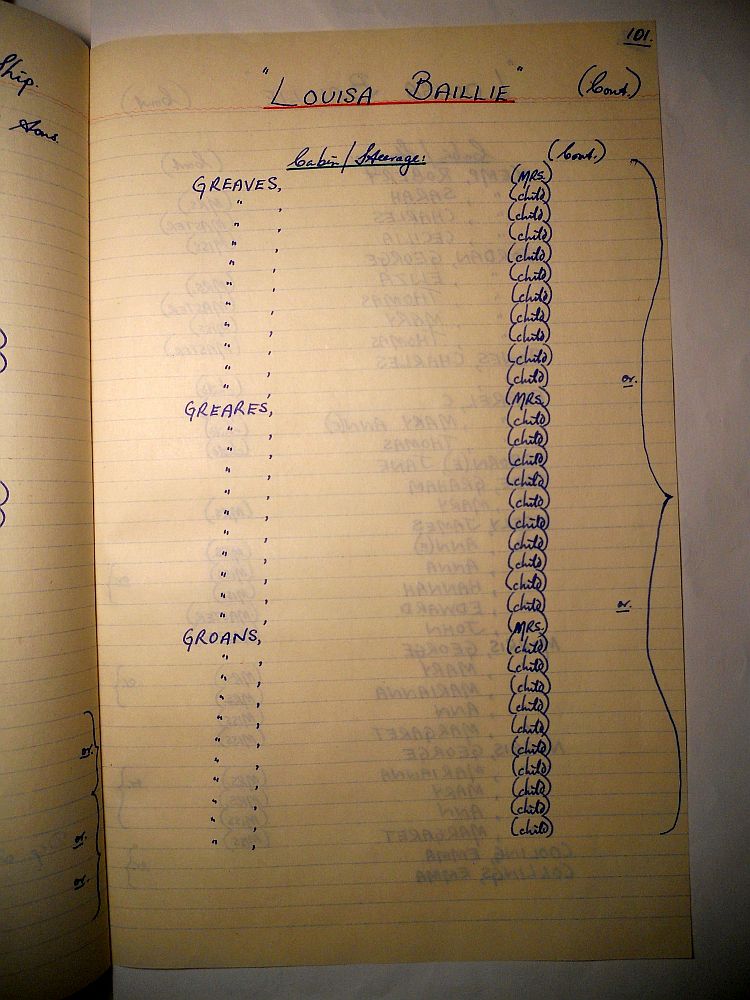 Ship.
Sons.
or.
or.
or.
101.
"LOUISA BAILLIE" (Cont.)
Cabin/Steerage: (Cont.)
GREAVES, (MRS.)
" , (child)
" , (child)
" , (child)
" , (child)
" , (child)
" , (child)
" , (child)
" , (child)
" , (child)
" , (child) or.
GREARES, (MRS.)
" , (child)
" , (child)
" , (child)
" , (child)
" , (child)
" , (child)
" , (child)
" , (child)
" , (child)
" , (child) or.
GROANS, (MRS.)
" , (child)
" , (child)
" , (child)
" , (child)
" , (child)
" , (child)
" , (child)
" , (child)
" , (child)
" , (child)